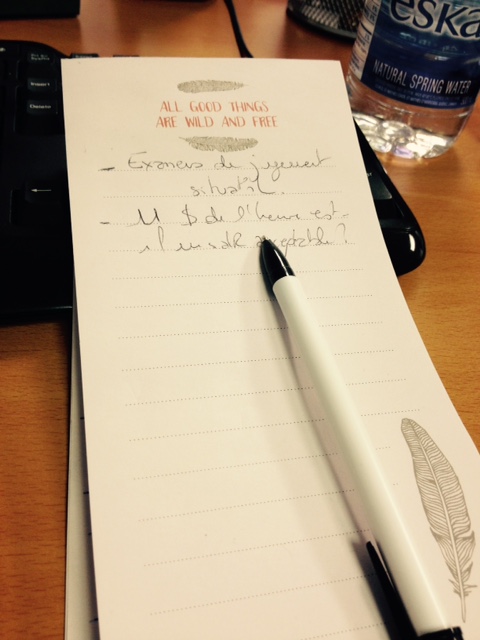 ALL GOOD THINGS
ARE WILD AND FREE
- Examens de jugement
situat.
- 11 $ de l'heure est-
il un acceptable ?
eska
NATURAL SPRING WATER